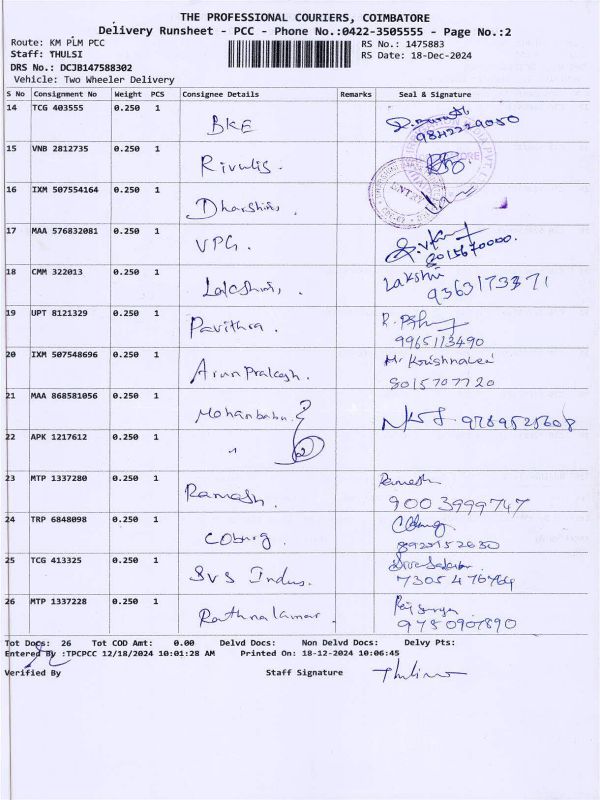 THE PROFESSIONAL COURIERS, COIMBATORE
Delivery Runsheet - PCC - Phone No.:0422-3505555 - Page No.:2
Route: KM PLM PCC
RS No.: 1475883
Staff: THULSI
RS Date: 18-Dec-2024
DRS No.: DCJB147588302
Vehicle: Two Wheeler Delivery
S No Consignment No Weight PCS Consignee Details Remarks Seal & Signature
14 TCG 403555 0.250 1 BKE
9842229050
15 VNB 2812735 0.250 1 Rivulis.
16 IXM 507554164 0.250 1 Dharshini.
ENTRY
17 MAA 576832081 0.250 1 VPG.
8015670000.
18 CMM 322013 0.250 1 Lakshmi, Lakshmi
9363173371
19 UPT 8121329 0.250 1 Pavithra.
9965113490
20 IXM 507548696 0.250 1 Arun Prakash.
8015707720
21 MAA 868581056 0.250 1 Mohanbabu. 9789525608
22 APK 1217612 0.250 1 "
23 MTP 1337280 0.250 1 Ramesh. Ramesh
9003999747
24 TRP 6848098 0.250 1 Coburg.
8920152630
25 TCG 413325 0.250 1 SVS Indus.
7305476764
26 MTP 1337228 0.250 1 Rathnakumar.
9750907890
Tot Docs: 26 Tot COD Amt: 0.00 Delvd Docs: Non Delvd Docs: Delvy Pts:
Entered By :TPCPCC 12/18/2024 10:01:28 AM Printed On: 18-12-2024 10:06:45
Verified By Staff Signature